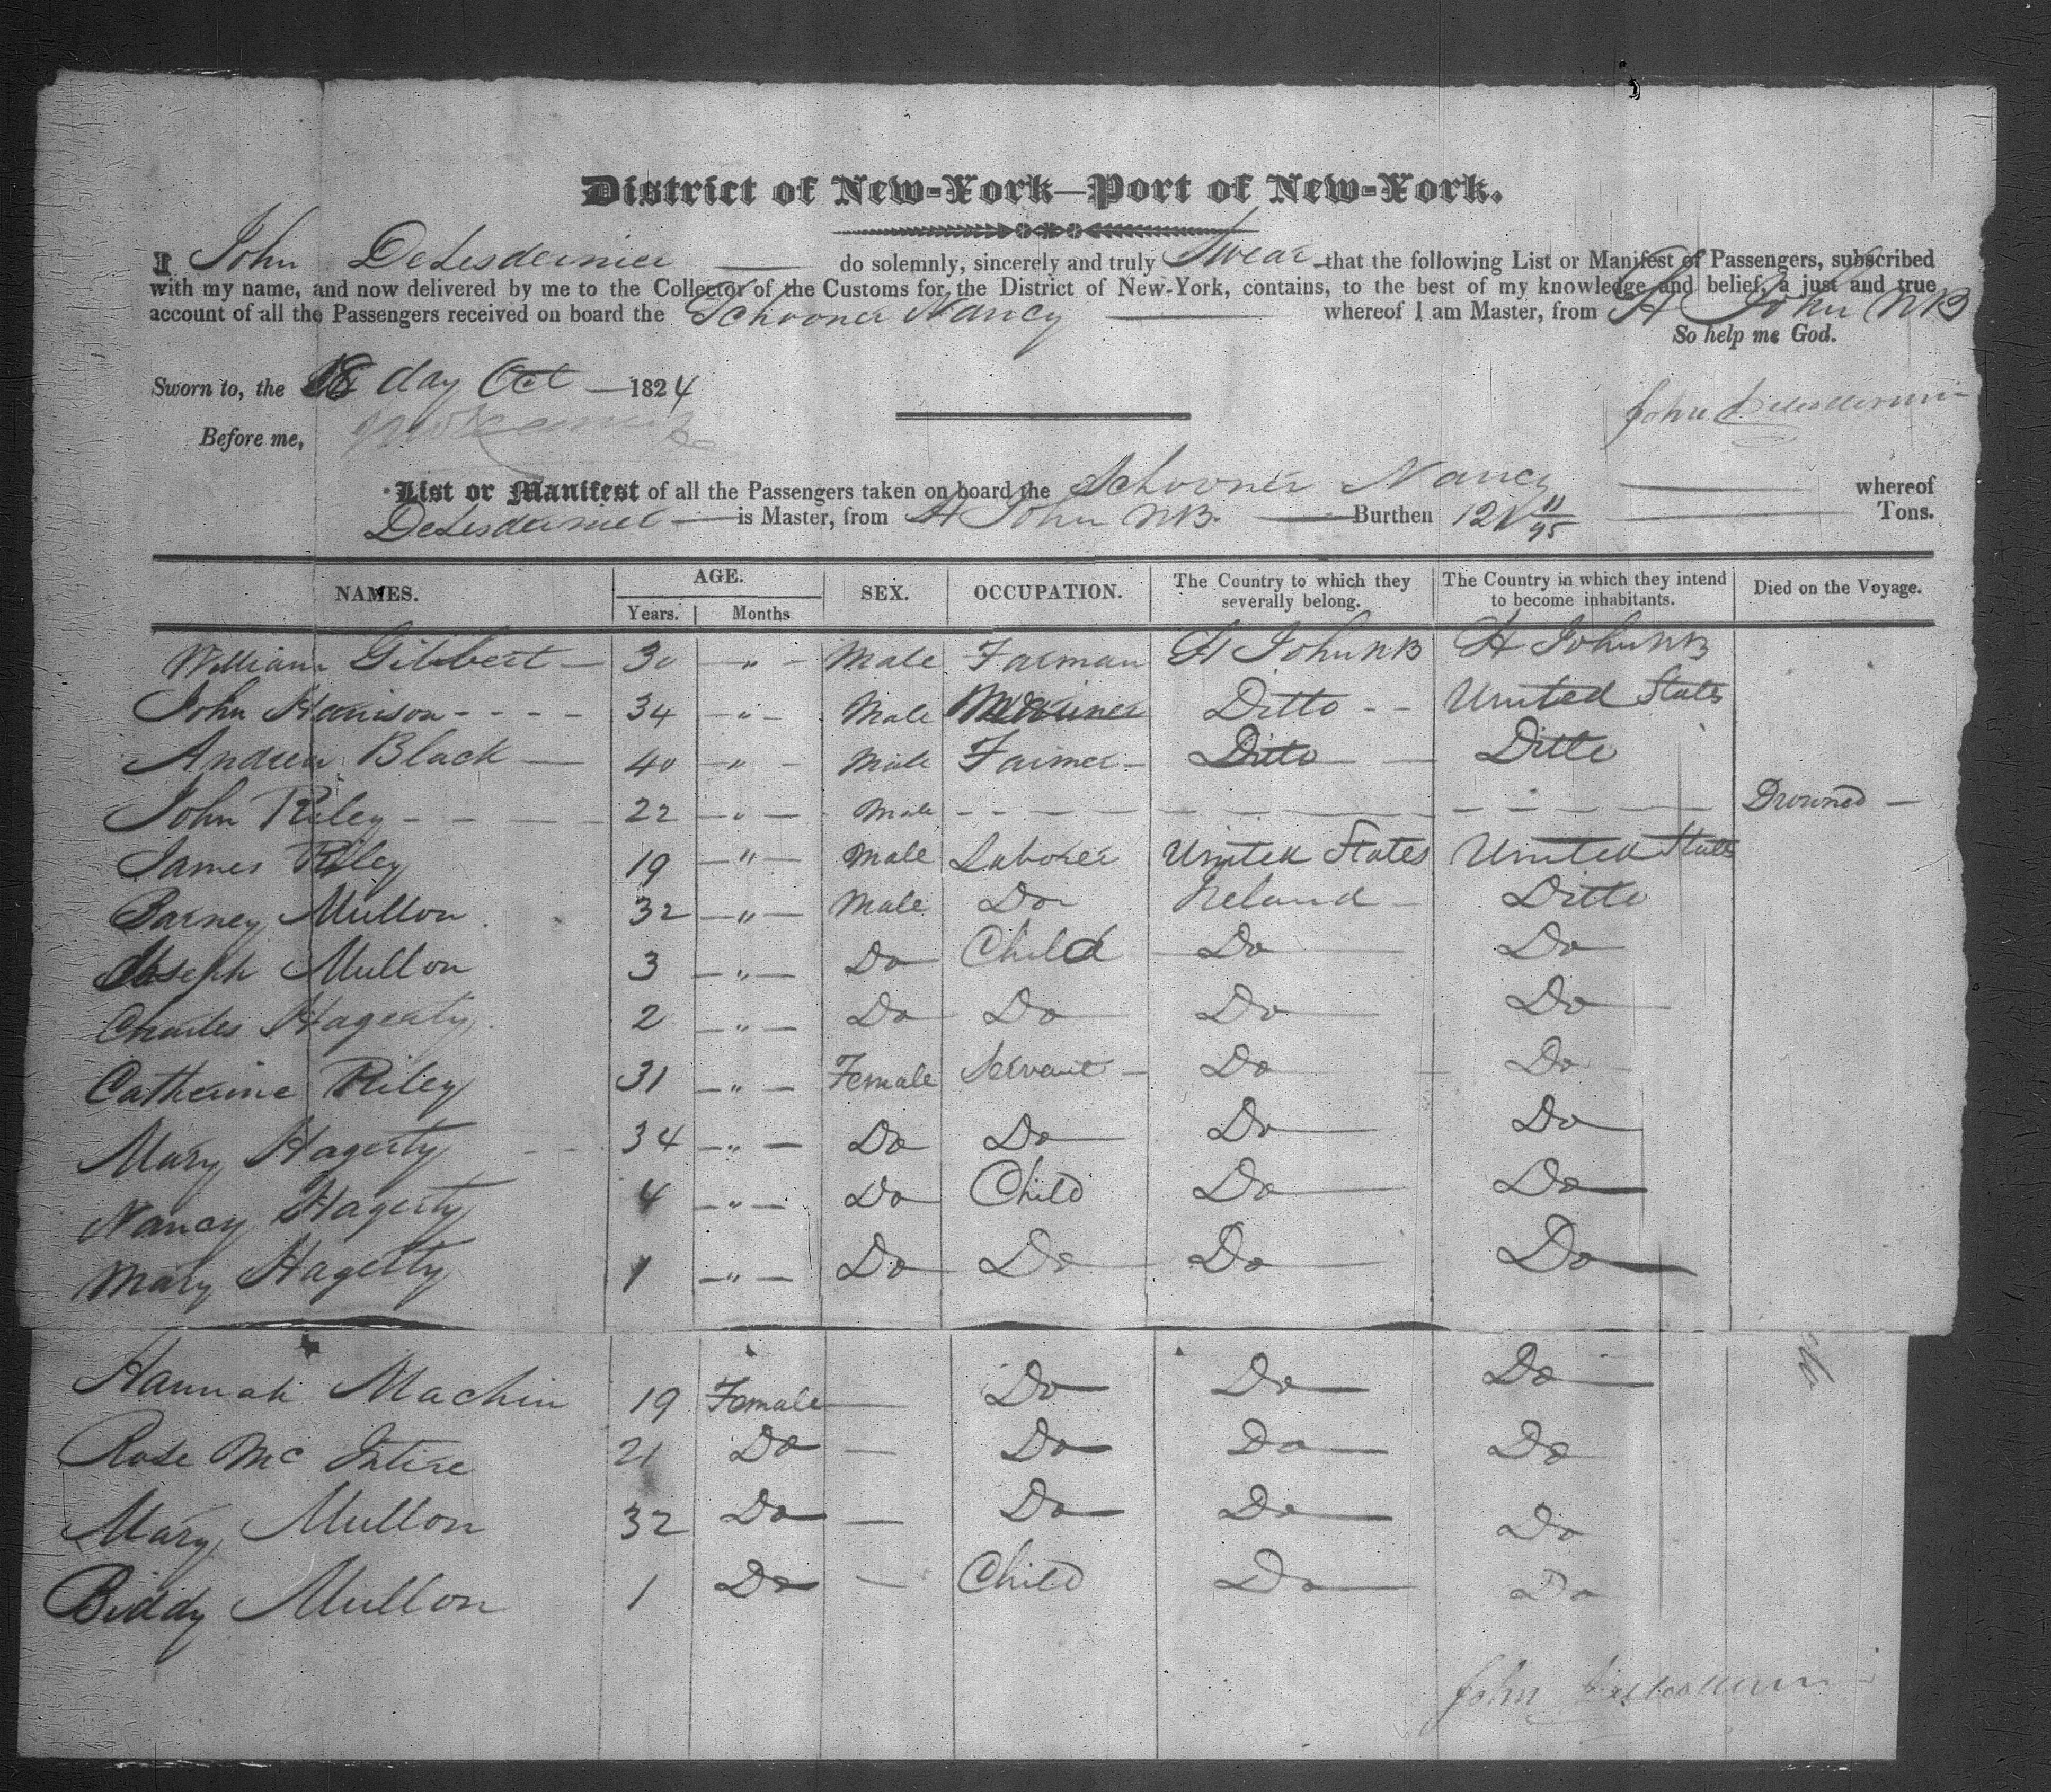 District of New-York—Port of New-York.
I John DeLesdernier — do solemnly, sincerely and truly Swear that the following List or Manifest of Passengers, subscribed
with my name, and now delivered by me to the Collector of the Customs for the District of New-York, contains, to the best of my knowledge and belief, a just and true
account of all the Passengers received on board the Schooner Nancy — whereof I am Master, from St John NB
So help me God.
Sworn to, the 18 day Oct — 1824
John DeLesdernier
Before me,
List or Manifest of all the Passengers taken on board the Schooner Nancy — whereof
DeLesdernier — is Master, from St John NB. — Burthen 121 11/95 — Tons.
NAMES. AGE. SEX. OCCUPATION. The Country to which they severally belong. The Country in which they intend to become inhabitants. Died on the Voyage.
Years. Months
William Gilbert — 30 — " — Male Farman St John NB St John NB
John Harrison - - - - 34 — " — Male Mariner Ditto - - United States
Andrew Black — 40 — " — Male Farmer — Ditto — Ditto
John Riley - - - - 22 — " — Male - - - - Drowned —
James Riley 19 — " — Male Laborer United States United States
Barney Mullon 32 — " — Male Do Ireland - Ditto
Joseph Mullon 3 — " — Do Child Do Do
Charles Hagerty 2 — " — Do Do Do Do
Catherine Riley 31 — " — Female Servant — Do Do
Mary Hagerty 34 — " — Do Do Do Do
Nancy Hagerty 4 — " — Do Child Do Do
Mary Hagerty 1 — " — Do Do Do Do
Hannah Machin 19 Female — Do Do Do
Rose Mc Intire 21 Do — Do Do Do
Mary Mullon 32 Do — Do Do Do
Biddy Mullon 1 Do — Child Do Do
John DeLesdernier